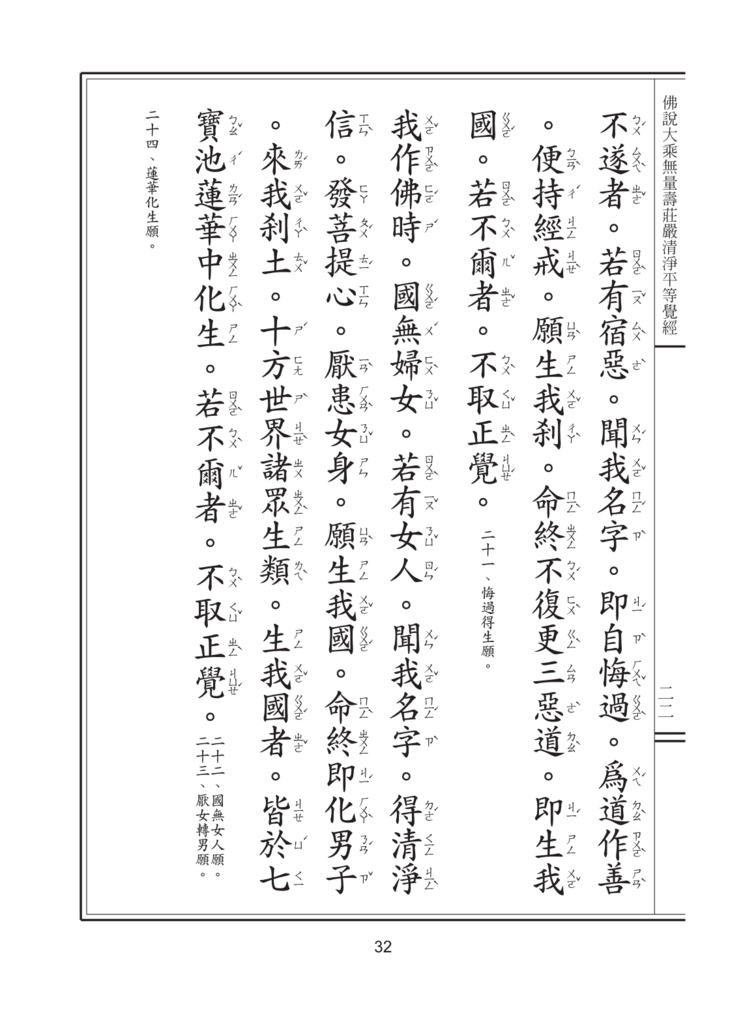 佛說大乘無量壽莊嚴清淨平等覺經
二二
不遂者。若有宿惡。聞我名字。即自悔過。爲道作善
。便持經戒。願生我剎。命終不復更三惡道。即生我
國。若不爾者。不取正覺。二十一、悔過得生願。
我作佛時。國無婦女。若有女人。聞我名字。得清淨
信。發菩提心。厭患女身。願生我國。命終即化男子
。來我剎土。十方世界諸眾生類。生我國者。皆於七
寶池蓮華中化生。若不爾者。不取正覺。二十二、國無女人願。二十三、厭女轉男願。
二十四、蓮華化生願。
32